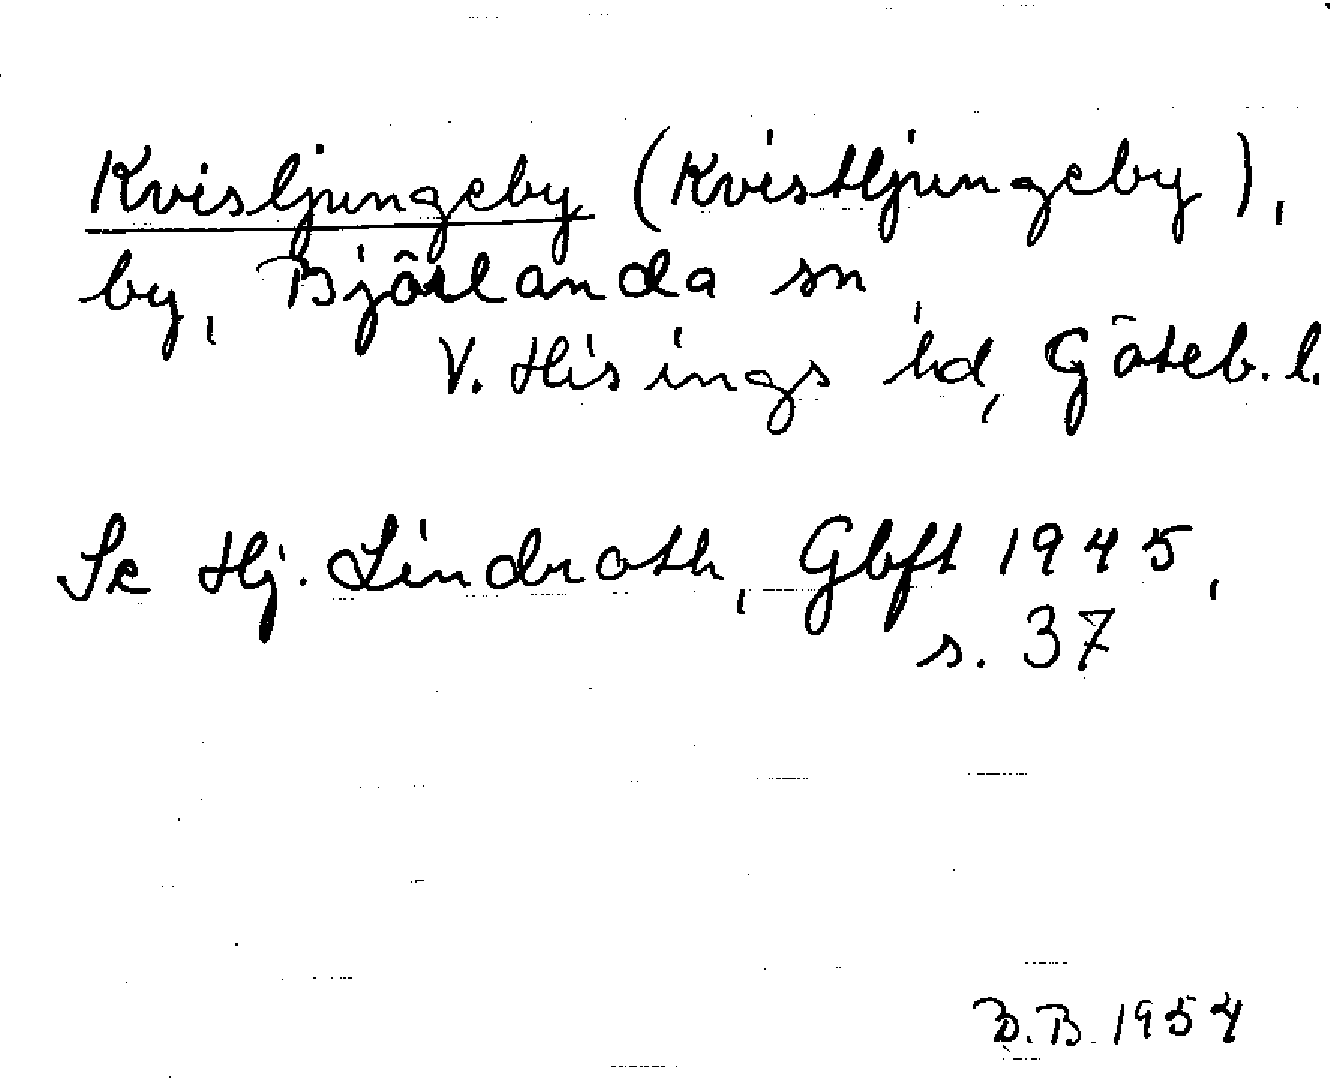 Kvisljungeby (Kvistljungeby),
by, Björlanda sn
V. Hisings hd, Göteb. l.
Se Hj. Lindroth, Gbft 1945,
s. 37
B.B. 1954